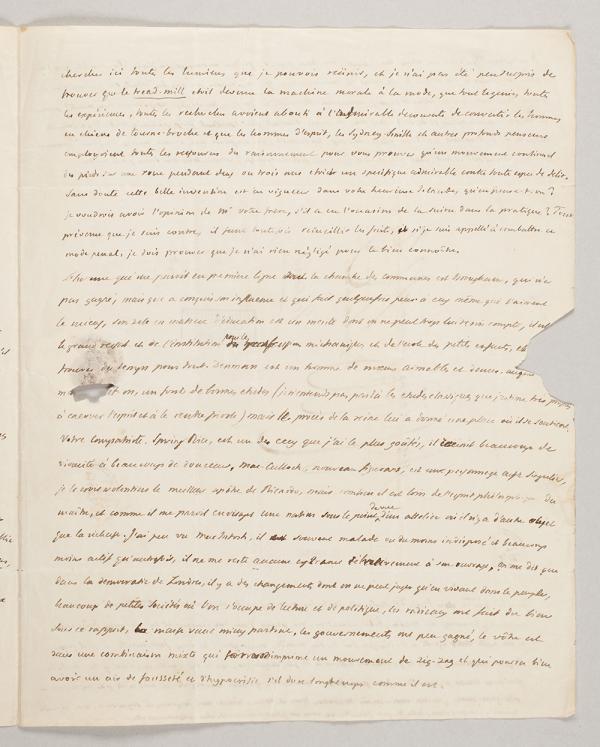 chercher ici toutes les lumières que je pouvois réunir, et je n'ai pas été peu surpris de
trouver que le tread-mill étoit devenu la machine morale à la mode, que tout le génie, toutes
les expériences, toutes les recherches avoient abouti à l'admirable découverte de convertir les hommes
en chiens de tourne-broche et que les hommes d'esprit, les Sydney Smith et autres profonds penseurs
employoient toutes les ressources du raisonnement pour vous prouver qu'un mouvement continuel
des pieds sur une roue pendant deux ou trois mois étoit un spécifique admirable contre toute espèce de délit.
Sans doute cette belle invention est en vigueur dans votre heureuse
je voudrois avoir l'opinion de Mr votre frère, s'il a eu l'occasion de la suivre dans la pratique?
prévenu que je suis contre, il faut toutefois recueillir les faits, et si je suis appellé à combattre ce
mode penal, je dois prouver que je n'ai rien négligé pour le bien connoître.
L'homme que me paroit en première ligne dans la chambre des communes est Brougham, qui n'a
pas gagné, mais qui a conquis son influence et qui fait quelquefois peur à ceux même qui
le succès, son zèle en matière d'éducation est un mérite dont on ne peut trop lui tenir compte, il est
le grand ressort et de l'institution pour les mechaniques et de l'école des petits enfants, et
trouver du temps pour tout. Denman est un homme de mœurs aimables et douces,
un fonds de bonnes études (je n'entends pas par là les études classiques que j'estime très propres
à énerver l'esprit et à le rendre froid) mais le procès de la reine lui a donné une place où il se soutient.
Votre compatriote, Spring Rice, est un de ceux que j'ai le plus goûtés, il réunit beaucoup de
vivacité à beaucoup de douceur, Mac-Culloch, nouveau Ricardo, est un personnage assez singulier,
je le crois volontiers le meilleur apôtre de Ricardo, mais combien il est loin de l'esprit philosophique du
maître, et comme il me paroit envisager une nation sous le point de vue d'un attelier où il n'y a d'autre objet
que la richesse. J'ai peu vu Mackintosh, il est souvent malade ou du moins indisposé et beaucoup
moins actif qu'autrefois, il ne me reste aucune espérance relativement à son ouvrage. On me dit que
dans la democratie de Londres, il y a des changements dont on ne peut juger qu'en vivant dans le peuple,
beaucoup de petites sociétés où l'on s'occupe de lecture et de politique, les radicaux ont fait du bien
sous ce rapport, la masse vaut mieux partout, les gouvernements ont peu gagné, le vôtre est
dans une combinaison mixte qui imprime un mouvement de zig-zag et qui pourra bien
avoir un air de fausseté et d'hypocrisie, s'il dure longtemps comme il est.